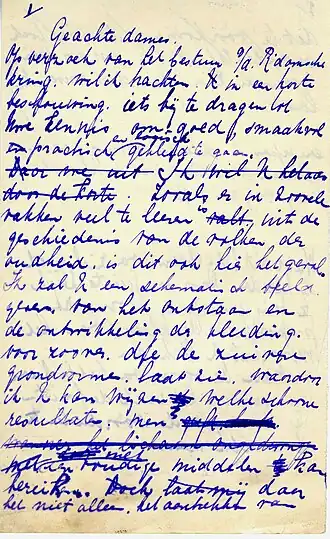 I
Geachte dames.
Op verzoek van het bestuur v/d. R'damsche
kring. wil ik trachten. U in een korte
beschouwing. iets bij te dragen tot
Uwe kennis om goed, smaakvol
en practisch gekleed te gaan.
Daar wij uit Ik wil U helaas
door de korte. Zooals er in zoovele
vakken veel te leeren is valt uit de
geschiedenis van de volken der
oudheid. is dit ook hier het geval
Ik zal U een schematisch beeld
geven. van het ontstaan en
de ontwikkeling der kleeding.
voor zoover. die de zuivere
grondvormen. laat zien. waardoor
ik U kan wijzen welke schoone
resultaten. men
met eenvoudige middelen kan
bereiken. Doch laat mij dan
het niet alleen. het aantrekken van